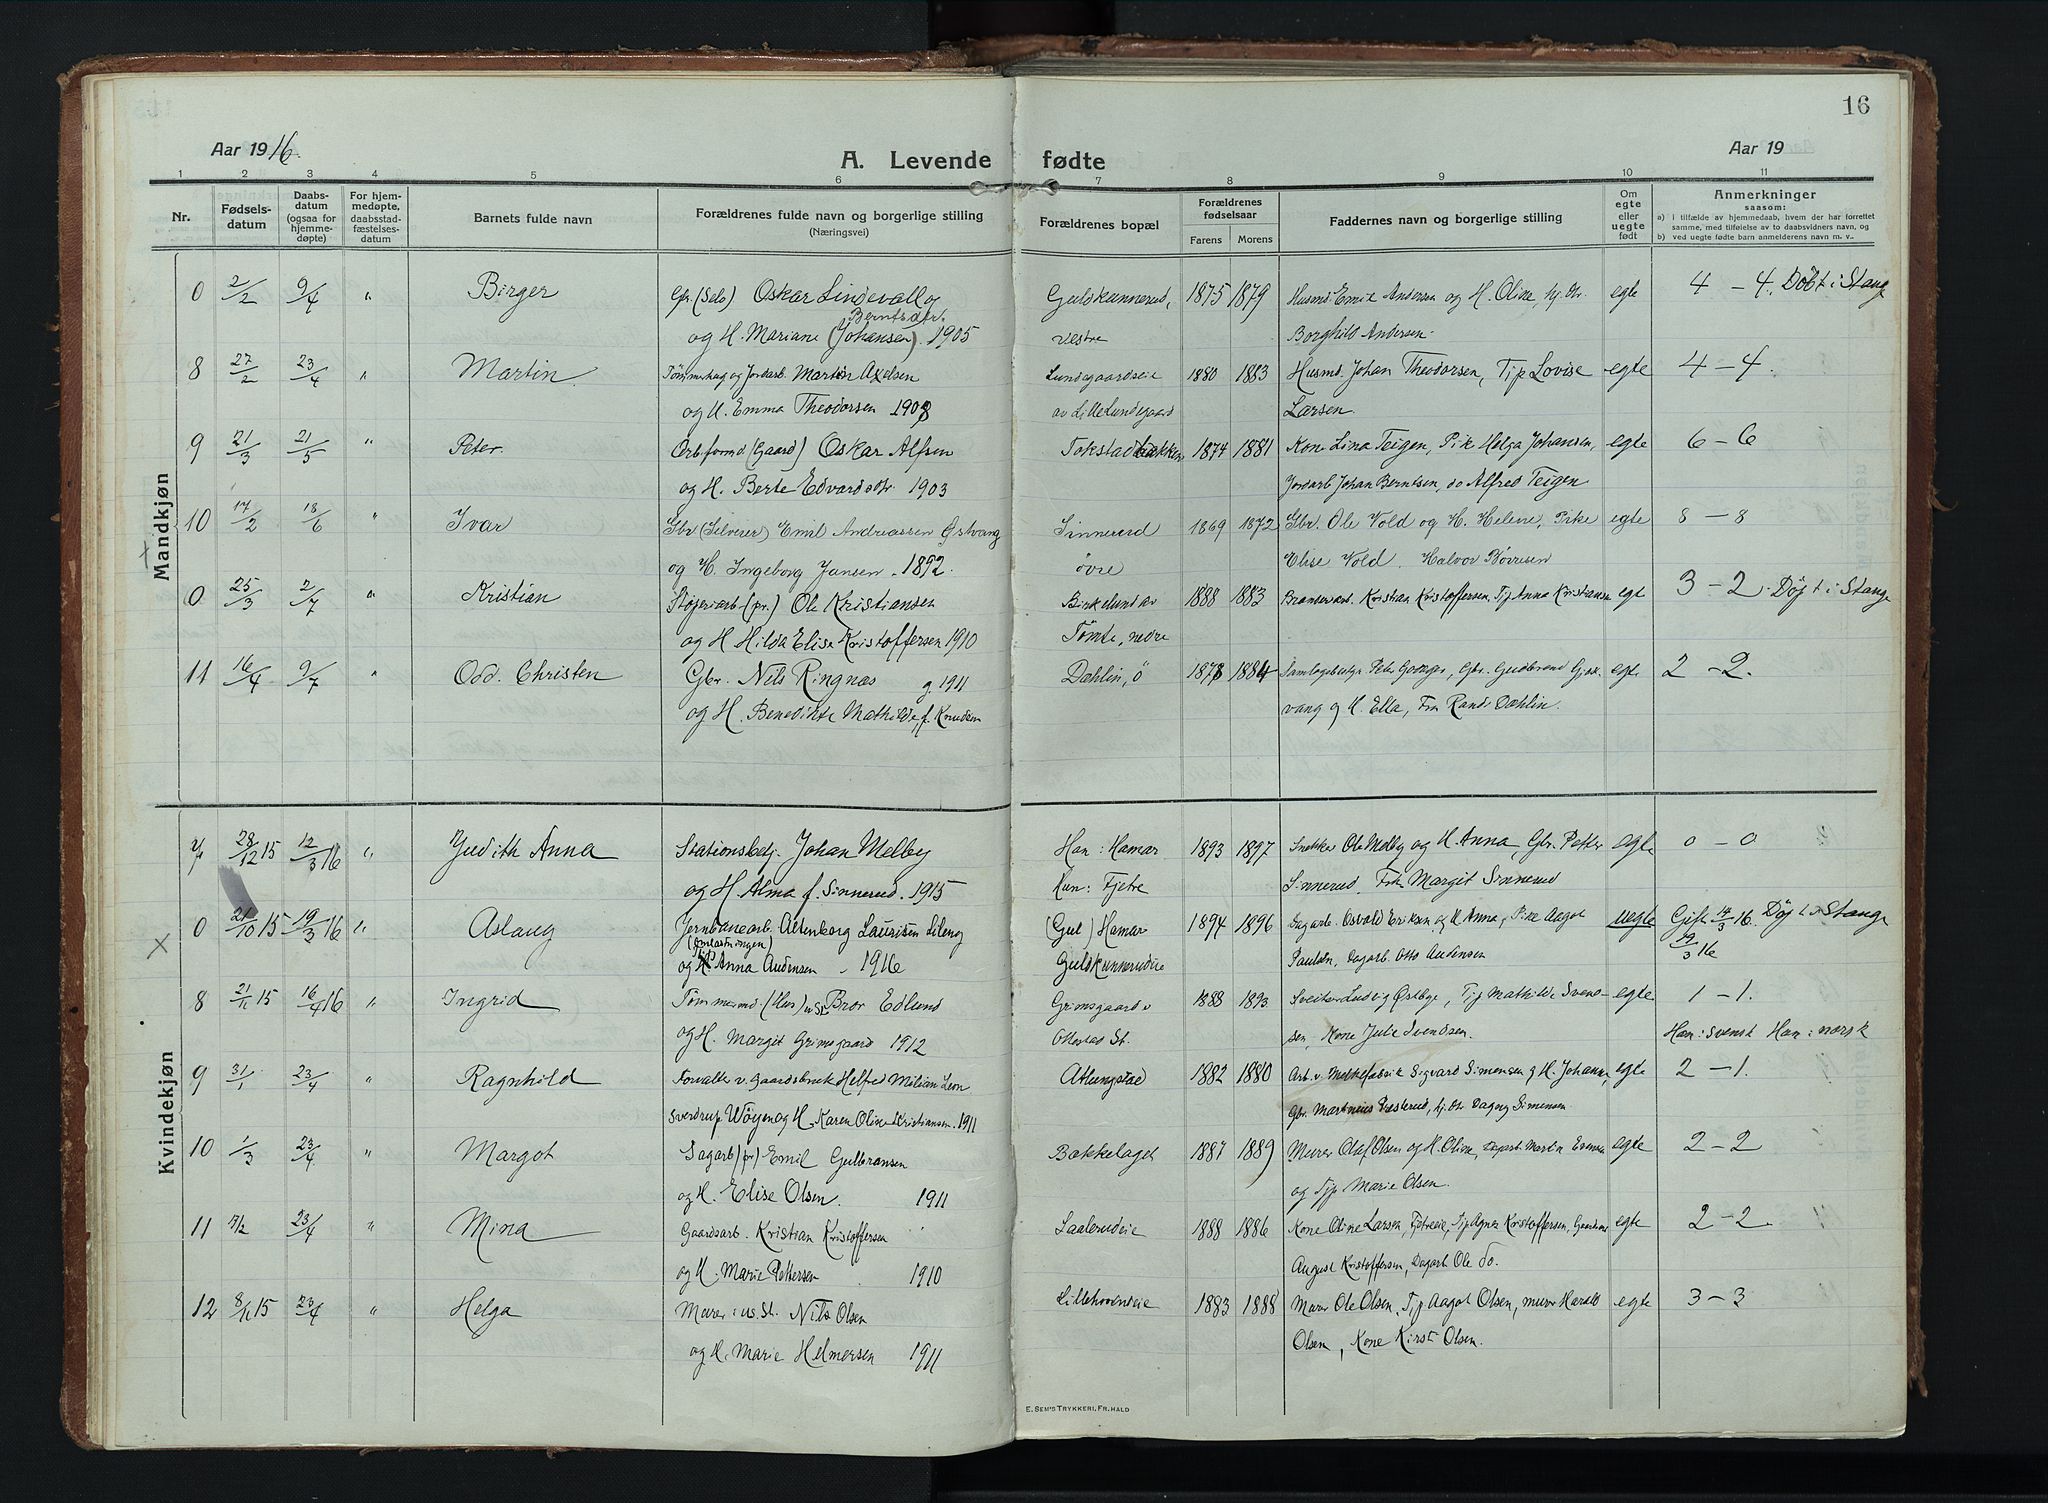 16
Aar 1916.
A. Levende fødte
Aar 19
1 2 3 4 5 6 7 8 9 10 11
Nr.
Fødsels-
datum
Daabs-
datum
(ogsaa for
hjemme-
døpte)
For hjem-
medøpte,
daabsstad-
fæstelses-
datum
Barnets fulde navn
Forældrenes fulde navn og borgerlige stilling
(Næringsvei)
Forældrenes bopæl
Forældrenes
fødselsaar
Farens Morens
Faddernes navn og borgerlige stilling
Om
egte
eller
uegte
født
Anmerkninger
saasom:
a) i tilfælde av hjemmedaab, hvem der har forrettet
samme, med tilføielse av to daabsvidners navn, og
b) ved uegte fødte barn anmelderens navn m. v..
Mandkjøn
0 2/2 9/4 " Birger Gbr. (Selo) Oskar Lindevall og Guldkunnerud, 1875 1879 Husmd Emil Andersen og H. Oline, hj. dtr. egte 4 - 4. Døbt i Stange
Berntsdtr.
og H. Mariane (Johansen) 1905 vestre Borghild Andersen.
8 27/2 23/4 " Martin Tømmerhug og Jordarb. Martin Axelsen Lundgaardseie 1880 1883 Husmd. Johan Theodorsen, Tjp Lovise egte 4 - 4.
og H. Emma Theodorsen 1908 av Lille Lundgaard Larsen.
9 21/3 21/5 " Peter. Arb.formd (Gaard) Oskar Alfsen Tokstadbakken 1874 1881 Kone Lina Teigen, Pike Helga Johansen, egte 6 - 6
og H. Berte Edvardsdtr. 1903 Jordarb Johan Berntsen, do Alfred Teigen
10 14/2 18/6 " Ivar Gbr (Selveier) Emil Andreassen Østvang Sinnerud 1869 1872 Gbr. Ole Vold og H. Helene, Pike egte 8 - 8
og H. Ingeborg Jansen. 1892. øvre Elise Vold. Halvor Børresen
0 25/3 2/7 " Kristian Støperiarb (pr.) Ole Kristiansen Birkelund av 1888 1883 Kristian Kristoffersen, Tjp Anna Kristiansen egte 3 - 2 Døpt i Stange
og H Hilda Elise Kristoffersen 1910 Tømte, nedre
11 16/4 9/7 " Odd. Christen Gbr. Nils Ringnæs g. 1911 Dæhlin, ø 1878 1884 Gbr. Gudbrand egte 2 - 2.
og H. Benedikte Mathilde, f. Knudsen vang og H. Ella, Frk Randi Dæhlin.
Kvindekjøn
7 28/12 15 12/3 16 " Judith Anna Stationsbetj. Johan Melby Han: Hamar 1893 1897 Snekker Ole Melby og H Anna, Gbr. Petter egte 0 - 0
og H Alma f. Sinnerud. 1915 Kun: Fjetre Sinnerud, Frk. Margit Sinnerud
0 21/10 15 19/3 16 " Aslaug Jernbanearb. Altenborg Lauritsen Lileng (Gul) Hamar 1894 1896 Sagarb. Osvald Eriksen og H Anna, Pike Aagot uegte Gift 14/3 16. Døpt i Stange
og Anna Audensen 1916 Guldkunnerudeie Paulsen, Dagarb. Otto Audensen 19/3 16
8 21/11 15 16/4 16 " Ingrid Tømmermd. (Hus) u St Bror Edlund Grimsgaard v 1888 1893 Sveitser Ludvig Østbye, Tjp Mathilde Svend- egte 1 - 1.
og H. Margit Grimsgaard 1912 Ottestad St. sen, Kone Julie Svendsen. Han: svensk Hun: norsk
9 31/1 23/4 " Ragnhild Forvalter v. Gaardsbruk Helfred Milian Leon Atlungstad 1882 1880 Arb. v. Melkefabrik Sigvard Simensen og H. Johanne, egte 2 - 1.
Sverdrup Wøyen og H. Karen Oline Kristiansen. 1911 Gbr. Martinius Vesterud, hj. dtr Dagny Simensen.
10 1/3 23/4 " Margot Sagarb (pr) Emil Gulbransen Bakkelaget 1887 1889 Murer Olaf Olsen og H. Oline, Dagarb. Martin Evensen egte 2 - 2
og H. Elise Olsen. 1911 og Tjp Marie Olsen.
11 19/2 23/4 " Mina Gaardsarb. Kristian Kristoffersen Saalerudeie 1888 1886 Kone Oline Larsen, Fjetreeie, Tjp Agnes Kristoffersen, egte 2 - 2.
og H. Marie Pettersen 1910 August Kristoffersen, Dagarb. Ole do.
12 8/11 15 23/4 " Helga Murer u. St. Nils Olsen Lillehovendeie 1883 1888 Murer Ole Olsen, Tjp Aagot Olsen, murer Harald egte 3 - 3
og H. Marie Helmersen 1911 Olsen, Kone Kirsti Olsen.
E. SEM'S TRYKKERI, FR.HALD